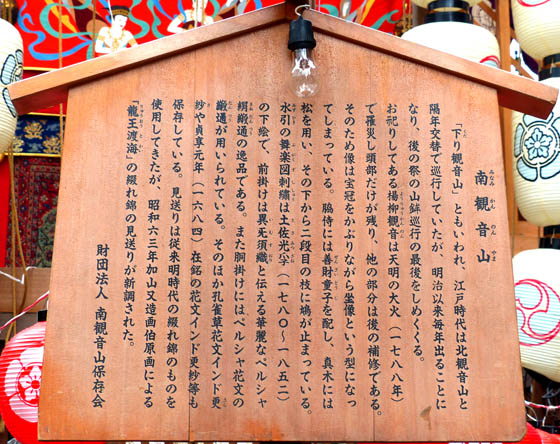 南観音山
みなみかんのんやま
「下り観音山」ともいわれ、江戸時代は北観音山と
隔年交替で巡行していたが、明治以来毎年出ることに
なり、後の祭の山鉾巡行の最後をしめくくる。
お祀りしてある楊柳観音は天明の大火(一七八八年)
で罹災し頭部だけが残り、他の部分は後の補修である。
そのため像は宝冠をかぶりながら坐像という型になっ
てしまっている。脇侍には善財童子を配し、真木には
松を用い、その下から二段目の枝に鳩が止まっている。
水引の舞楽図刺繍は土佐光孚(一七八〇〜一八五二)
の下絵で、前掛けは異无須織と伝える華麗なペルシャ
絹緞通の逸品である。また胴掛けにはペルシャ花文の
緞通が用いられている。そのほか孔雀草花文インド更
紗や貞享元年(一六八四)在銘の花文インド更紗等も
保存している。見送りは従来明時代の綴れ錦のものを
使用してきたが、昭和六三年加山又造画伯原画による
「龍王渡海」の綴れ錦の見送りが新調された。
財団法人 南観音山保存会